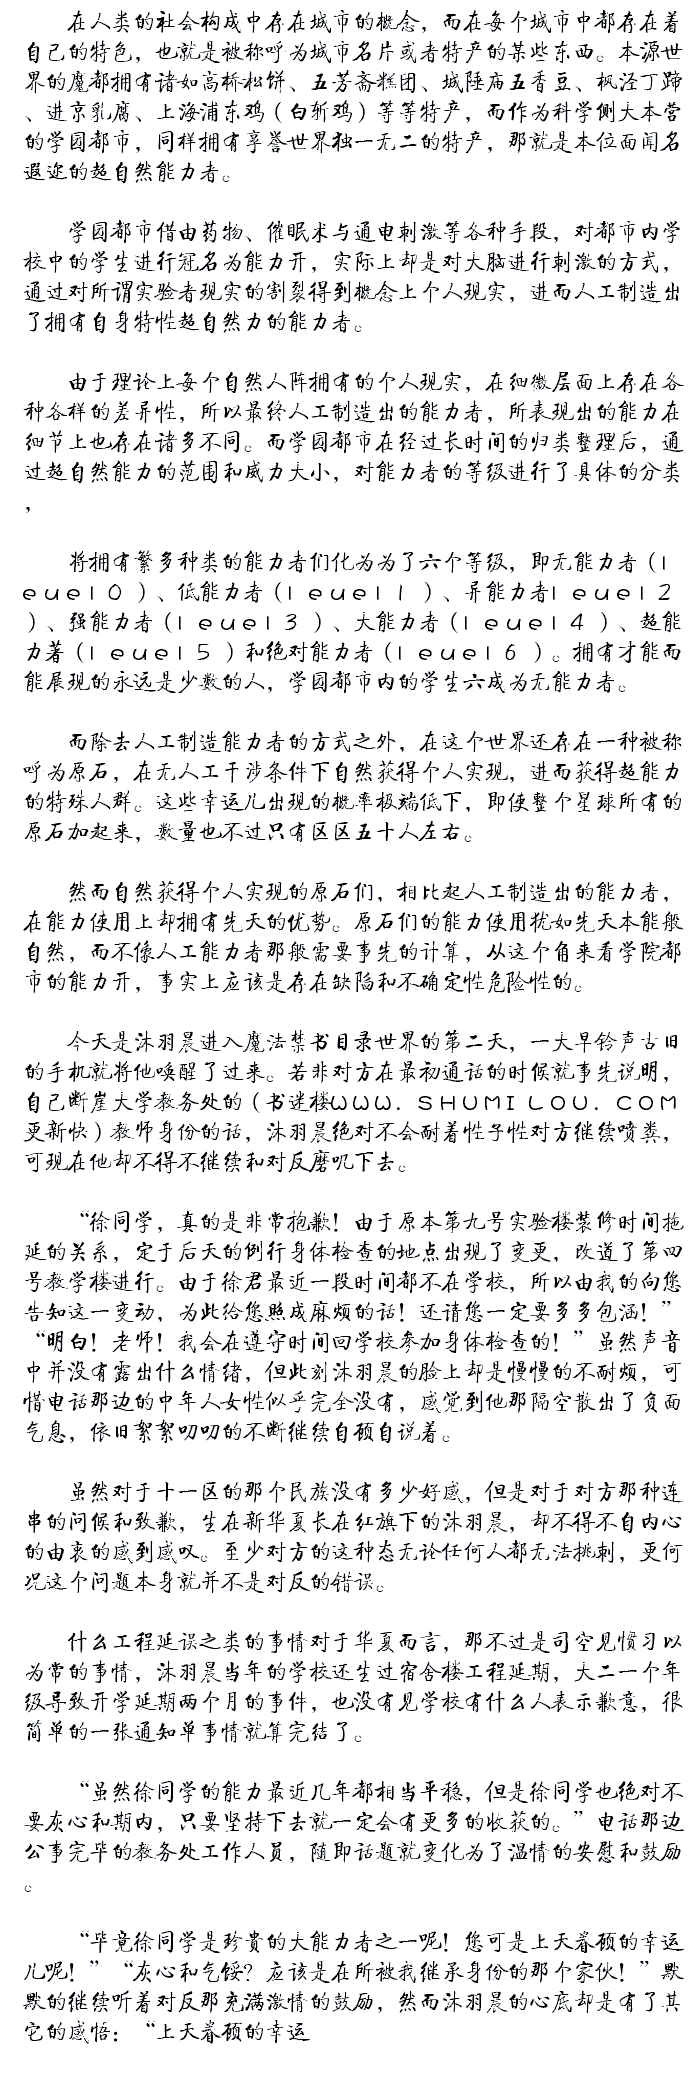 在人类的社会构成中存在城市的概念，而在每个城市中都存在着
自己的特色，也就是被称呼为城市名片或者特产的某些东西。本源世
界的魔都拥有诸如高桥松饼、五芳斋糕团、城隍庙五香豆、枫泾丁蹄
、进京乳腐、上海浦东鸡（白斩鸡）等等特产，而作为科学侧大本营
的学园都市，同样拥有享誉世界独一无二的特产，那就是本位面闻名
遐迩的超自然能力者。
学园都市借由药物、催眠术与通电刺激等各种手段，对都市内学
校中的学生进行冠名为能力开，实际上却是对大脑进行刺激的方式，
通过对所谓实验者现实的割裂得到概念上个人现实，进而人工制造出
了拥有自身特性超自然力的能力者。
由于理论上每个自然人阵拥有的个人现实，在细微层面上存在各
种各样的差异性，所以最终人工制造出的能力者，所表现出的能力在
细节上也存在诸多不同。而学园都市在经过长时间的归类整理后，通
过超自然能力的范围和威力大小，对能力者的等级进行了具体的分类
，
将拥有繁多种类的能力者们化为为了六个等级，即无能力者（l
ｅｕｅｌ０）、低能力者（ｌｅｕｅｌ１）、异能力者ｌｅｕｅｌ２
）、强能力者（ｌｅｕｅｌ３）、大能力者（ｌｅｕｅｌ４）、超能
力著（ｌｅｕｅｌ５）和绝对能力者（ｌｅｕｅｌ６）。拥有才能而
能展现的永远是少数的人，学园都市内的学生六成为无能力者。
而除去人工制造能力者的方式之外，在这个世界还存在一种被称
呼为原石，在无人工干涉条件下自然获得个人实现，进而获得超能力
的特殊人群。这些幸运儿出现的概率极端低下，即使整个星球所有的
原石加起来，数量也不过只有区区五十人左右。
然而自然获得个人实现的原石们，相比起人工制造出的能力者，
在能力使用上却拥有先天的优势。原石们的能力使用犹如先天本能般
自然，而不像人工能力者那般需要事先的计算，从这个角来看学院都
市的能力开，事实上应该是存在缺陷和不确定性危险性的。
今天是沐羽晨进入魔法禁书目录世界的第二天，一大早铃声古旧
的手机就将他唤醒了过来。若非对方在最初通话的时候就事先说明，
自己断崖大学教务处的（书迷楼ＷＷＷ．ＳＨＵＭＩＬＯＵ．ＣＯＭ
更新快）教师身份的话，沐羽晨绝对不会耐着性子性对方继续喷粪，
可现在他却不得不继续和对反磨叽下去。
“徐同学，真的是非常抱歉！由于原本第九号实验楼装修时间拖
延的关系，定于后天的例行身体检查的地点出现了变更，改道了第四
号教学楼进行。由于徐君最近一段时间都不在学校，所以由我的向您
告知这一变动，为此给您照成麻烦的话！还请您一定要多多包涵！”
“明白！老师！我会在遵守时间回学校参加身体检查的！”虽然声音
中并没有露出什么情绪，但此刻沐羽晨的脸上却是慢慢的不耐烦，可
惜电话那边的中年人女性似乎完全没有，感觉到他那隔空散出了负面
气息，依旧絮絮叨叨的不断继续自顾自说着。
虽然对于十一区的那个民族没有多少好感，但是对于对方那种连
串的问候和致歉，生在新华夏长在红旗下的沐羽晨，却不得不自内心
的由衷的感到感叹。至少对方的这种态无论任何人都无法挑刺，更何
况这个问题本身就并不是对反的错误。
什么工程延误之类的事情对于华夏而言，那不过是司空见惯习以
为常的事情，沐羽晨当年的学校还生过宿舍楼工程延期，大二一个年
级导致开学延期两个月的事件，也没有见学校有什么人表示歉意，很
简单的一张通知单事情就算完结了。
“虽然徐同学的能力最近几年都相当平稳，但是徐同学也绝对不
要灰心和期内，只要坚持下去就一定会有更多的收获的。”电话那边
公事完毕的教务处工作人员，随即话题就变化为了温情的安慰和鼓励
。
“毕竟徐同学是珍贵的大能力者之一呢！您可是上天眷顾的幸运
儿呢！”“灰心和气馁？应该是在所被我继承身份的那个家伙！”默
默的继续听着对反那充满激情的鼓励，然而沐羽晨的心底却是有了其
它的感悟：“上天眷顾的幸运